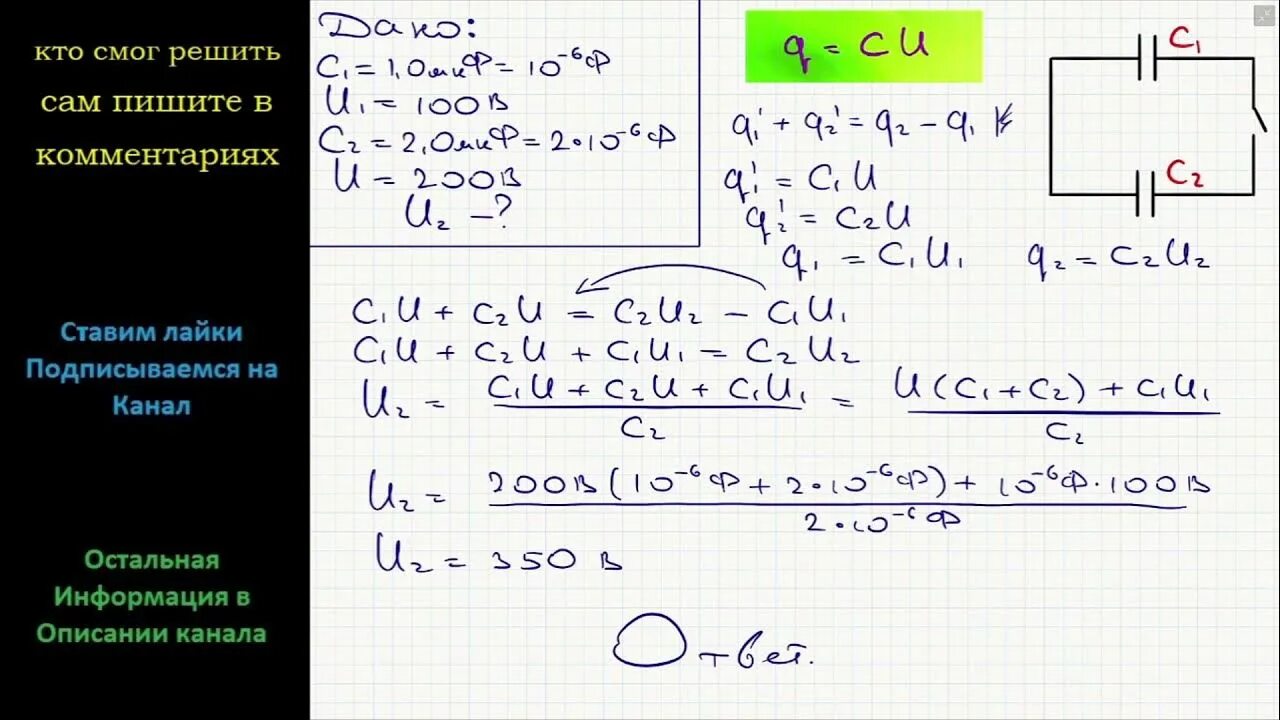 кто смог решить
сам пишите в
комментариях
Ставим лайки
Подписываемся на
Канал
Остальная
Информация в
Описании канала
Дано:
C₁ = 1,0мкФ = 10⁻⁶Ф
U₁ = 100В
C₂ = 2,0мкФ = 2·10⁻⁶Ф
U = 200В
U₂ – ?
q = CU
q₁' + q₂' = q₂ – q₁
q₁' = C₁U
q₂' = C₂U
q₁ = C₁U₁ q₂ = C₂U₂
C₁
C₂
C₁U + C₂U = C₂U₂ – C₁U₁
C₁U + C₂U + C₁U₁ = C₂U₂
U₂ = (C₁U + C₂U + C₁U₁)/C₂ = (U(C₁ + C₂) + C₁U₁)/C₂
U₂ = (200В(10⁻⁶Ф + 2·10⁻⁶Ф) + 10⁻⁶Ф·100В)/(2·10⁻⁶Ф)
U₂ = 350 В
Ответ.